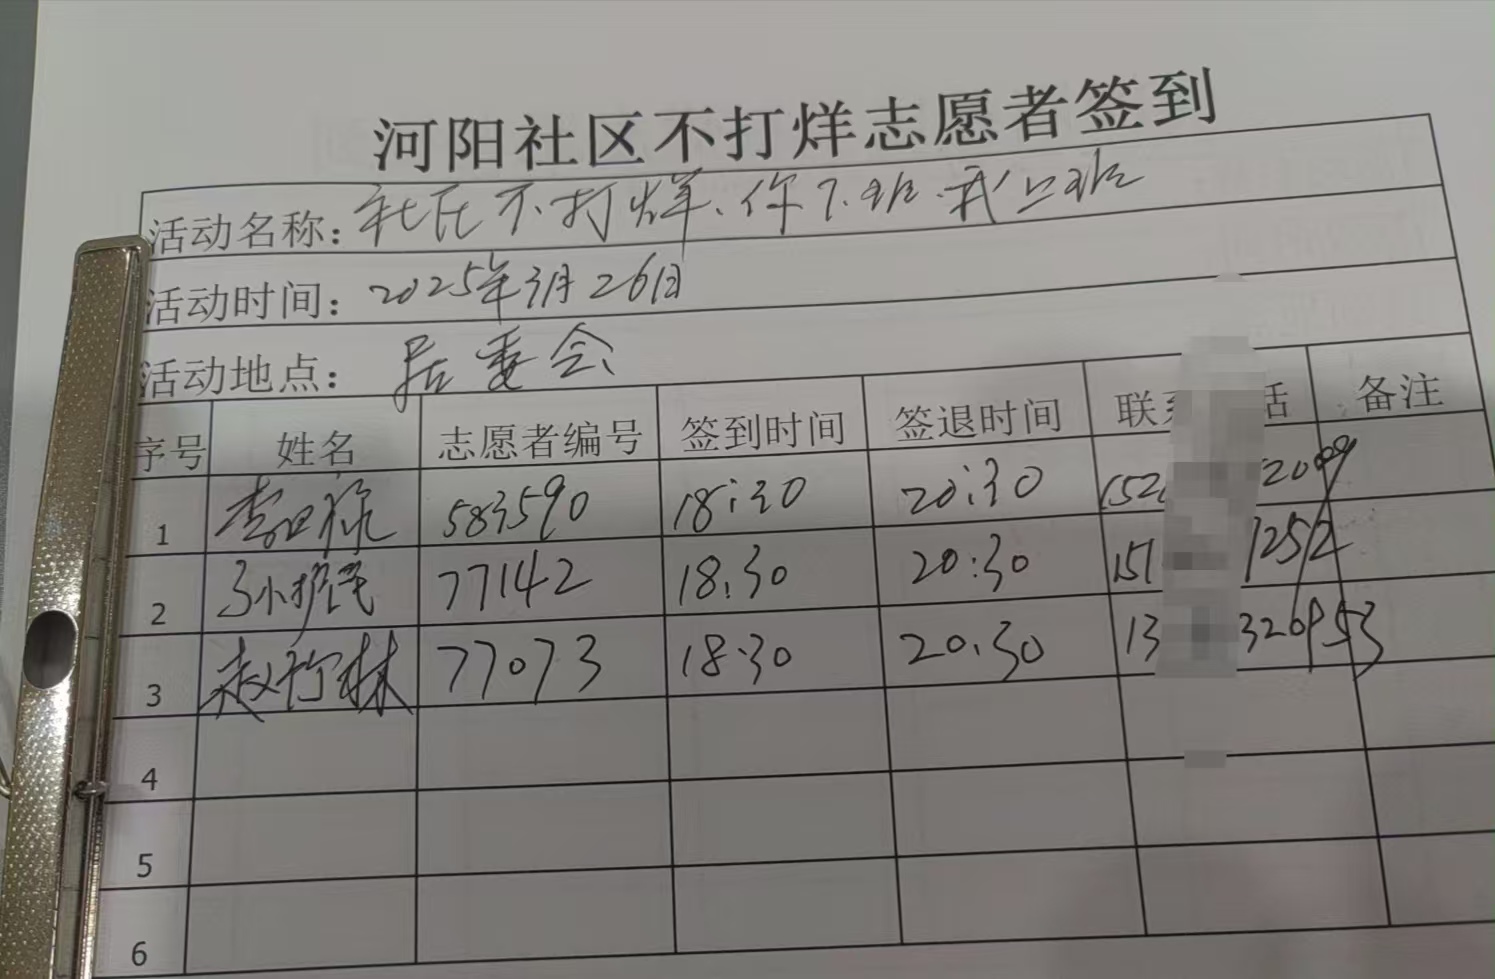 河阳社区不打烊志愿者签到
活动名称：社区不打烊、你下班、我上班
活动时间：2025年3月26日
活动地点：居委会
序号 姓名 志愿者编号 签到时间 签退时间 联系 话 备注
1 583590 18:30 20:30 152 2009
2 77142 18:30 20:30 151 1252
3 77073 18:30 20:30 13
4
5
6